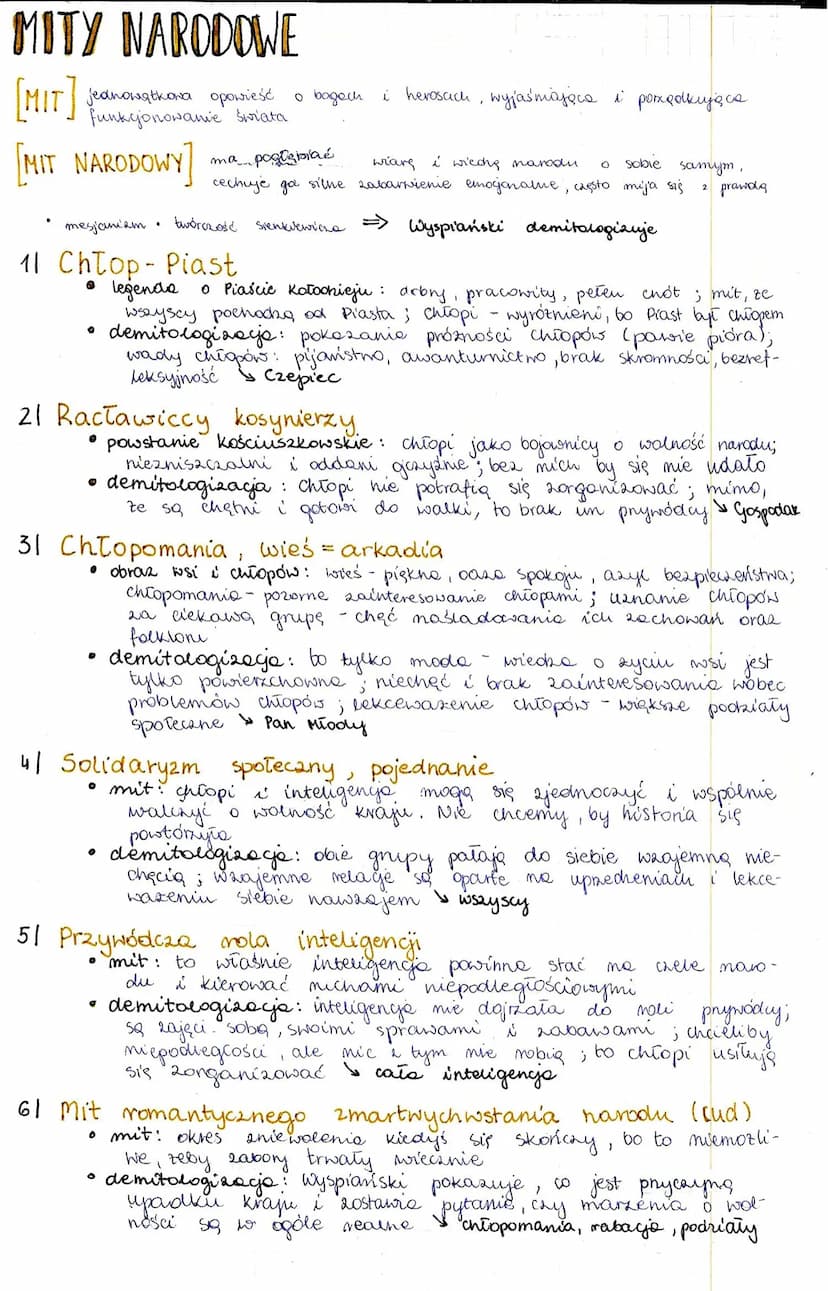 MITY NARODOWE
[MIT] jednowątkowa opowieść o bogach i herosach, wyjaśniająca i porządkująca
funkcjonowanie świata
[MIT NARODOWY] ma pogłębiać wiarę i wiedzę narodu o sobie samym,
cechuje go silne zabarwienie emocjonalne, często mija się z prawdą
• mesjanizm • twórczość sienkiewicza ⇒ Wyspiański demitologizuje
1| Chłop - Piast
• legenda o Piaście Kołodzieju: dobry, pracowity, pełen cnót; mit, że
wszyscy pochodzą od Piasta; chłopi - wyróżnieni, bo Piast był chłopem
• demitologizacja: pokazanie próżności chłopów (pawie pióra);
wady chłopów: pijaństwo, awanturnictwo, brak skromności, bezref-
leksyjność ↘ Czepiec
2| Racławiccy kosynierzy
• powstanie kościuszkowskie: chłopi jako bojownicy o wolność narodu;
niezniszczalni i oddani ojczyźnie; bez nich by się nie udało
• demitologizacja: chłopi nie potrafią się zorganizować; mimo,
że są chętni i gotowi do walki, to brak im przywódcy ↘ Gospodarz
3| Chłopomania, wieś = arkadia
• obraz wsi i chłopów: wieś - piękna, oaza spokoju, azyl bezpieczeństwa;
chłopomania - pozorne zainteresowanie chłopami; uznanie chłopów
za ciekawą grupę - chęć naśladowania ich zachowań oraz
folkloru
• demitologizacja: to tylko moda - wiedza o życiu wsi jest
tylko powierzchowna; niechęć i brak zainteresowania wobec
problemów chłopów; lekceważenie chłopów - większe podziały
społeczne ↘ Pan Młody
4| Solidaryzm społeczny, pojednanie
• mit: chłopi i inteligencja mogą się zjednoczyć i wspólnie
walczyć o wolność kraju. Nie chcemy, by historia się
powtórzyła
• demitologizacja: obie grupy pałają do siebie wzajemną nie-
chęcią; wzajemne relacje są oparte na uprzedzeniach i lekce-
ważeniu siebie nawzajem ↘ wszyscy
5| Przywódcza rola inteligencji
• mit: to właśnie inteligencja powinna stać na czele naro-
du i kierować ruchami niepodległościowymi
• demitologizacja: inteligencja nie dojrzała do roli przywódcy;
są zajęci sobą, swoimi sprawami i zabawami; chcieliby
niepodległości, ale nic z tym nie robią; to chłopi usiłują
się zorganizować ↘ cała inteligencja
6| Mit romantycznego zmartwychwstania narodu (cud)
• mit: okres zniewolenia kiedyś się skończy, bo to niemożli-
we, żeby zabory trwały wiecznie
• demitologizacja: Wyspiański pokazuje, co jest przyczyną
upadku kraju i zostawia pytanie, czy marzenia o wol-
ności są w ogóle realne ↘ chłopomania, rabacja, podziały